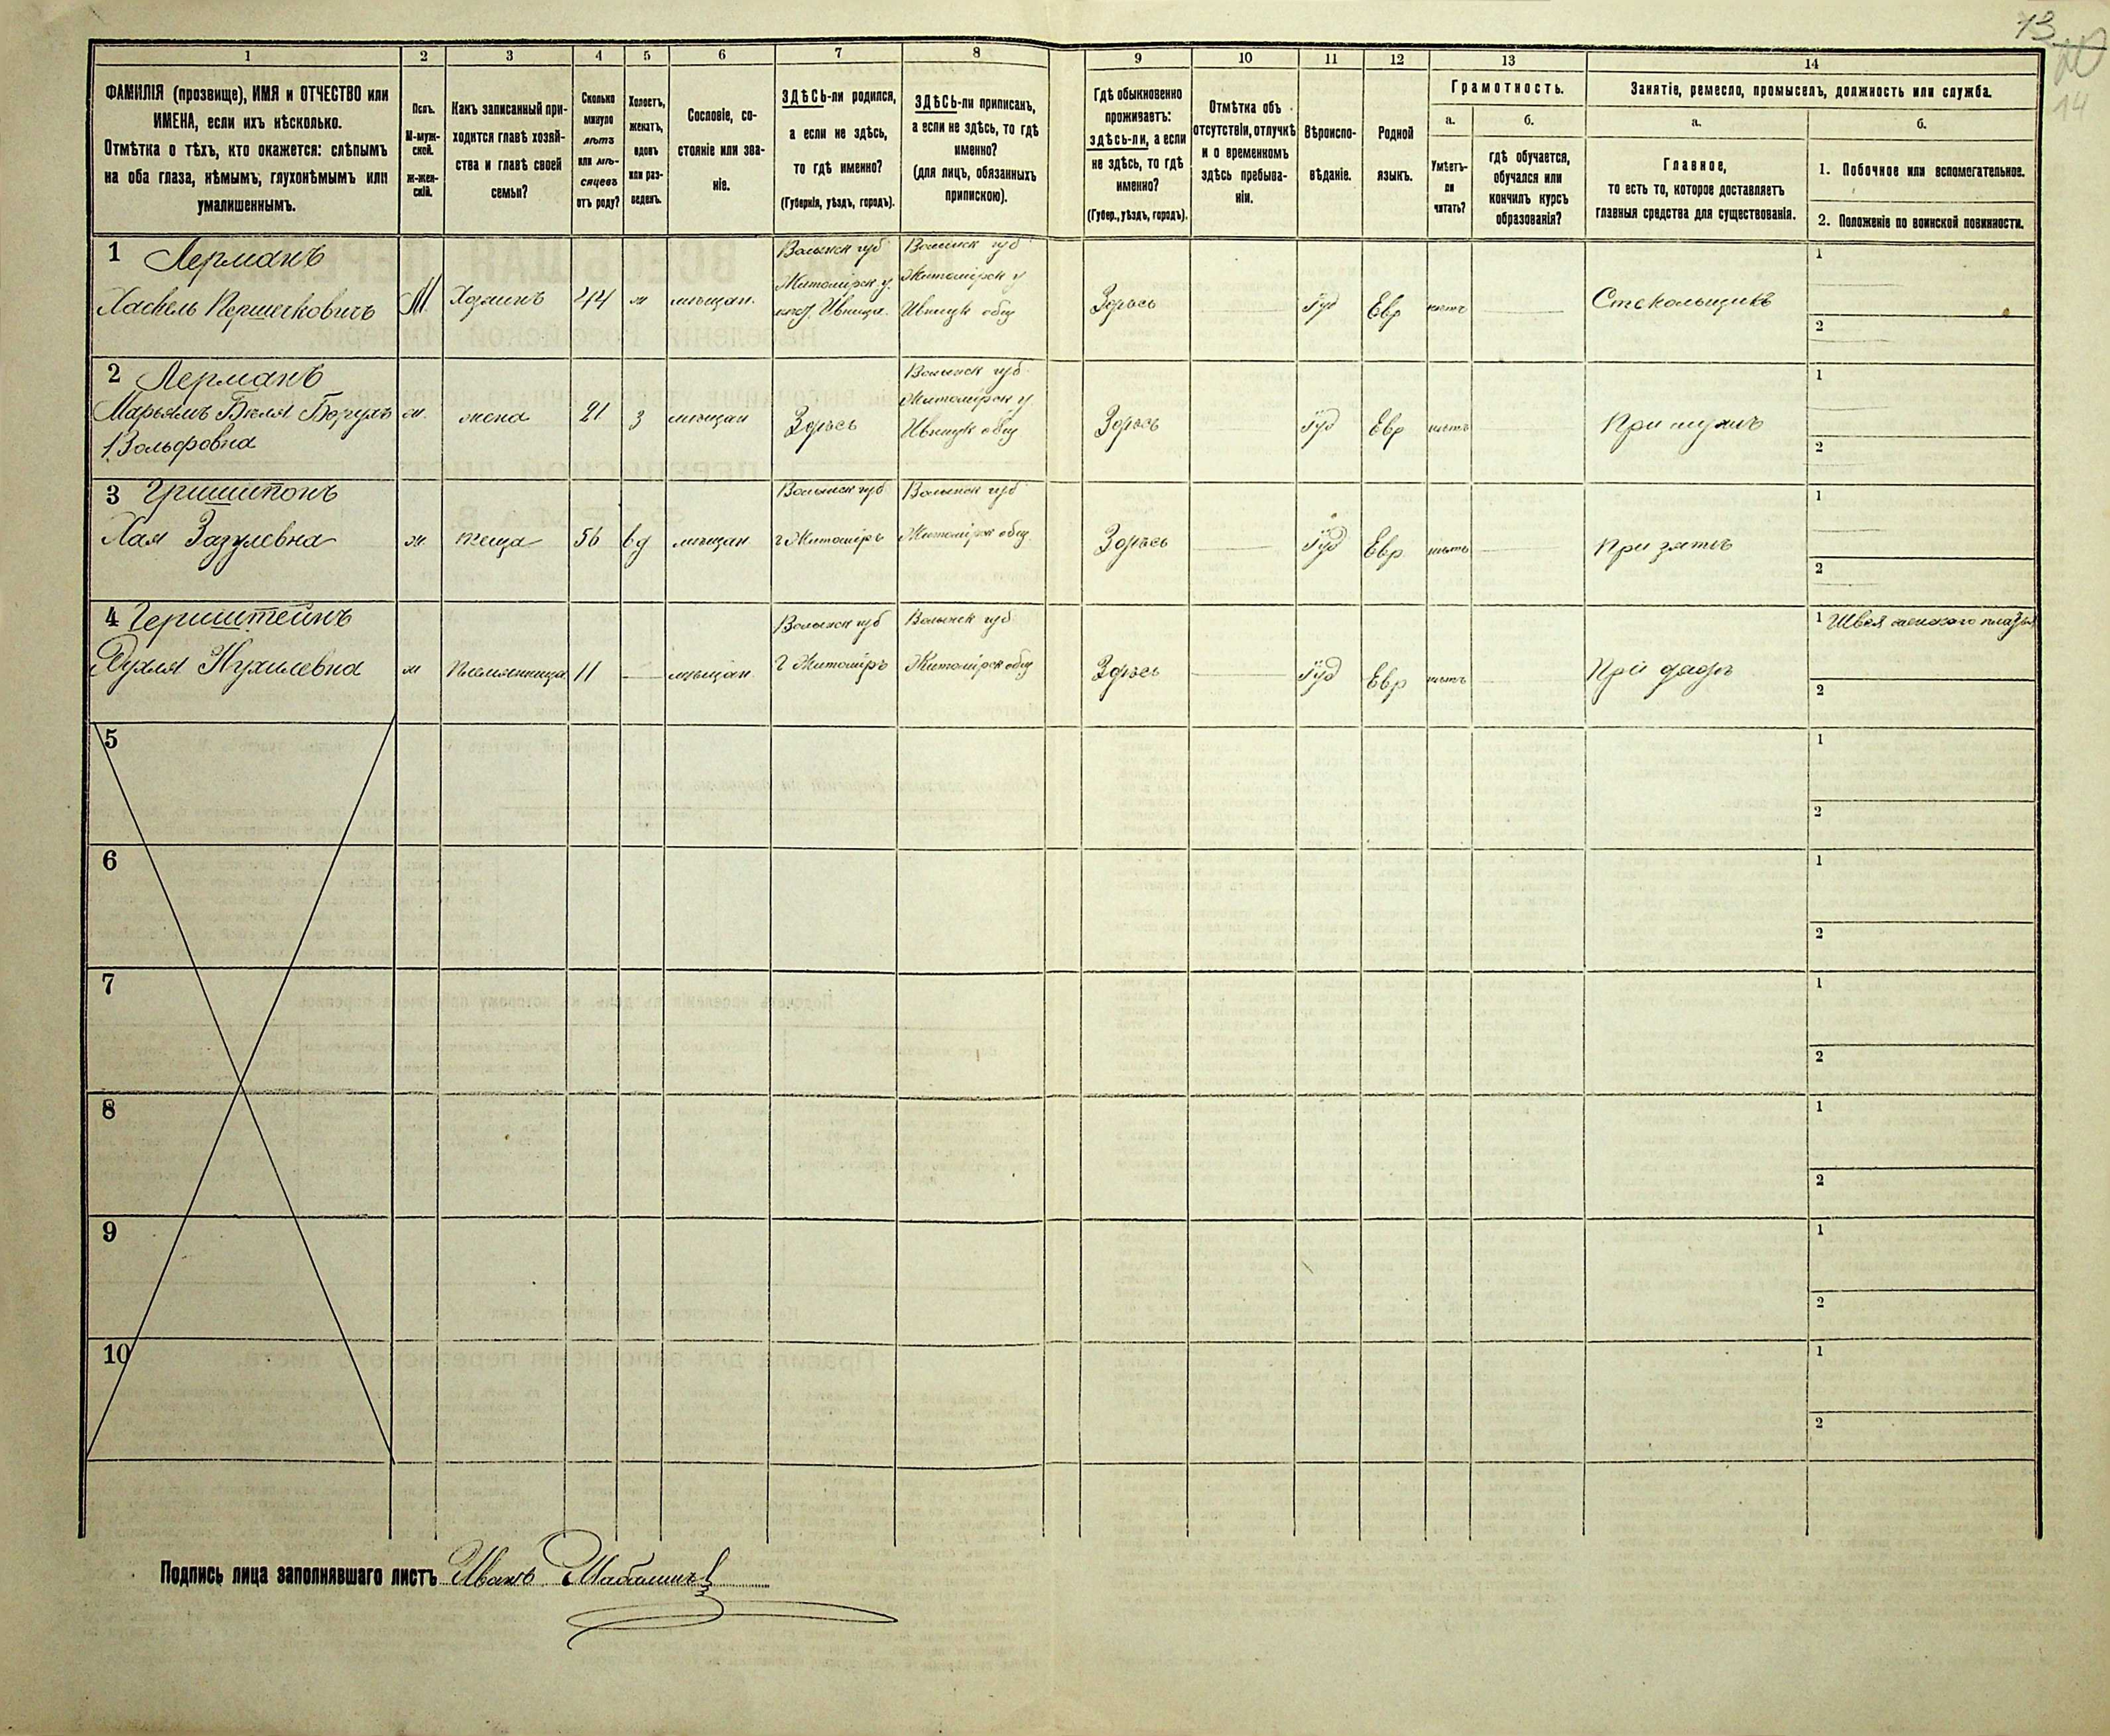 13
14
1
2
3
4
5
6
7
8
9
10
11
12
13
14
ФАМИЛІЯ (прозвище), ИМЯ и ОТЧЕСТВО или
ИМЕНА, если ихъ нѣсколько.
Отмѣтка о тѣхъ, кто окажется: слѣпымъ
на оба глаза, нѣмымъ, глухонѣмымъ или
умалишеннымъ.
Полъ.
М-муж-
ской.
ж-жен-
скій.
Какъ записанный при-
ходится главѣ хозяй-
ства и главѣ своей
семьи?
Сколько
минуло
лѣтъ
или мѣ-
сяцевъ
отъ роду?
Холостъ,
женатъ,
вдовъ
или раз-
веденъ.
Сословіе, со-
стояніе или зва-
ніе.
ЗДѢСЬ-ли родился,
а если не здѣсь,
то гдѣ именно?
(Губернія, уѣздъ, городъ).
ЗДѢСЬ-ли приписанъ,
а если не здѣсь, то гдѣ
именно?
(для лицъ, обязанныхъ
припискою).
Гдѣ обыкновенно
проживаетъ:
здѣсь-ли, а если
не здѣсь, то гдѣ
именно?
(Губер., уѣздъ, городъ).
Отмѣтка объ
отсутствіи, отлучкѣ
и о временномъ
здѣсь пребыва-
ніи.
Вѣроиспо-
вѣданіе.
Родной
языкъ.
Грамотность.
а.
Умѣетъ-
ли
читать?
б.
гдѣ обучается,
обучался или
кончилъ курсъ
образованія?
Занятіе, ремесло, промыселъ, должность или служба.
а.
Главное,
то есть то, которое доставляетъ
главныя средства для существованія.
б.
1. Побочное или вспомогательное.
2. Положеніе по воинской повинности.
1 Лерманъ
Хаскель Першковичъ
М
Хозяинъ
44
ж
мѣщан.
Волынск губ
Житомірск у.
Ивница.
Волынск губ
Житомірск у
Ивницк общ
Здѣсь
Іуд
Евр
нѣтъ
Стекольщикъ
1
2
2 Лерманъ
Марьямъ Бейля
Вольфовна
ж.
жена
21
З
мѣщан
Здѣсь
Волынск губ
Житомірск у.
Ивницк общ
Здѣсь
Іуд
Евр
нѣтъ
При мужѣ
1
2
3 Гришипонъ
Хая
ж.
теща
56
вд
мѣщан
Волынск губ
г Житоміръ
Волынск губ
Житомірск общ
Здѣсь
Іуд
Евр
нѣтъ
При зятѣ
1
2
4 Герштейнъ
Нухилевна
ж
Племянница
11
мѣщан
Волынск губ
г Житоміръ
Волынск губ
Житомірск общ
Здѣсь
Іуд
Евр
нѣтъ
При дядѣ
1 Швея женского платья
2
5
1
2
6
1
2
7
1
2
8
1
2
9
1
2
10
1
2
Подпись лица заполнявшаго листъ Иванъ